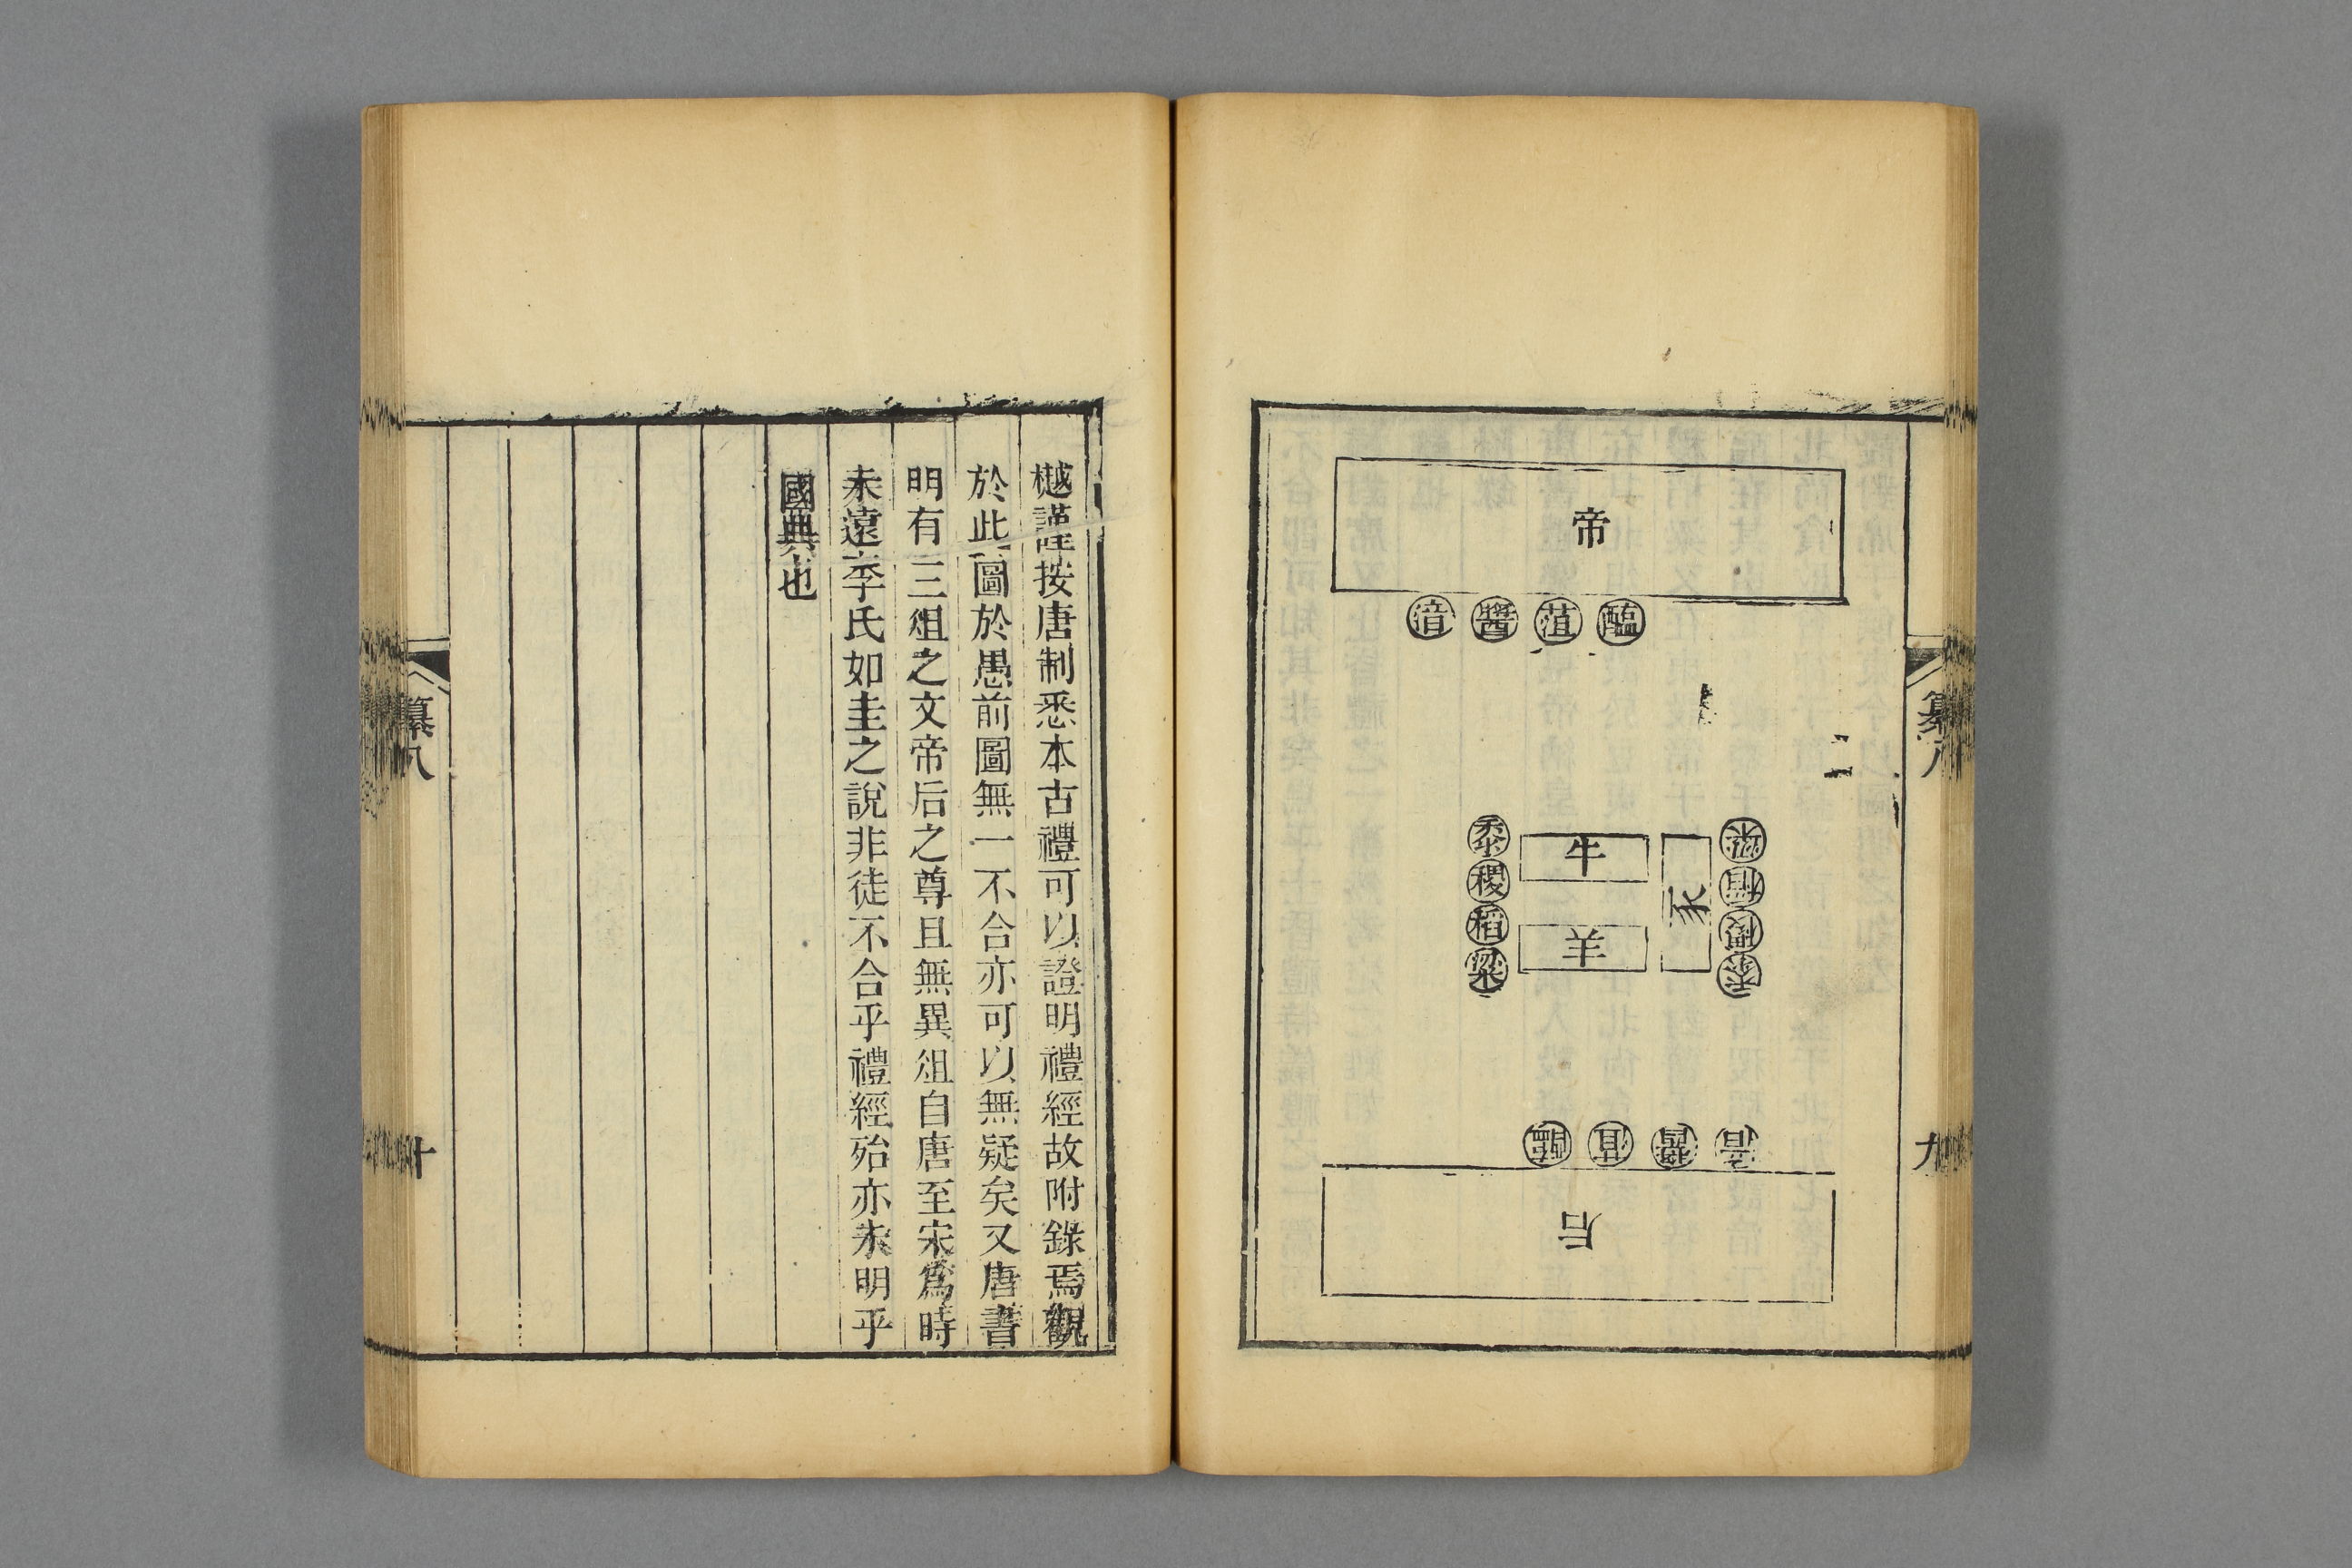 帝
湇醬菹醓
牛
羊
豕
黍稷稻粱
黍稷稻粱
湇醬菹醓
后
纂八
九
樾謹按唐制悉本古禮可以證明禮經故附錄焉觀
於此圖於愚前圖無一不合亦可以無疑矣又唐書
明有三俎之文帝后之尊且無異俎自唐至宋爲時
未遠李氏如圭之說非徒不合乎禮經殆亦未明乎
國典也
纂八
十